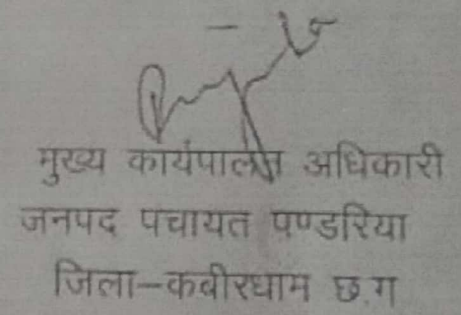 मुख्य कार्यपालन अधिकारी
जनपद पचायत पण्डरिया
जिला–कबीरधाम छ.ग